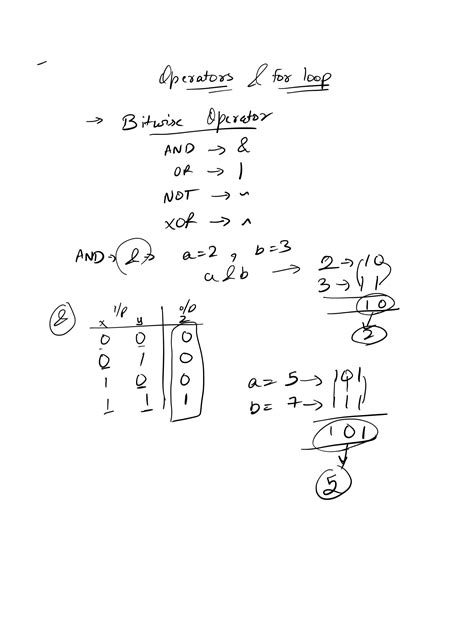 Operators & for loop
→ Bitwise Operator
AND → &
OR → |
NOT → ~
XOR → ^
AND → & → a=2, b=3
a&b → 2 → 10
3 → 11
10
2
& I/P O/P
x y Z
0 0 0
0 1 0
1 0 0
1 1 1
a= 5 → 101
b= 7 → 111
101
5